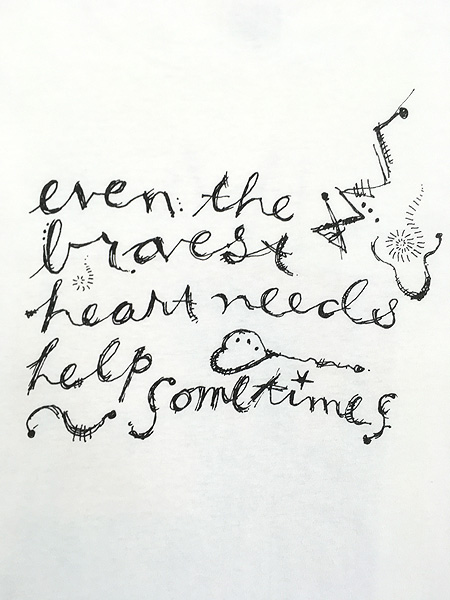 even the
bravest
heart needs
help
sometimes